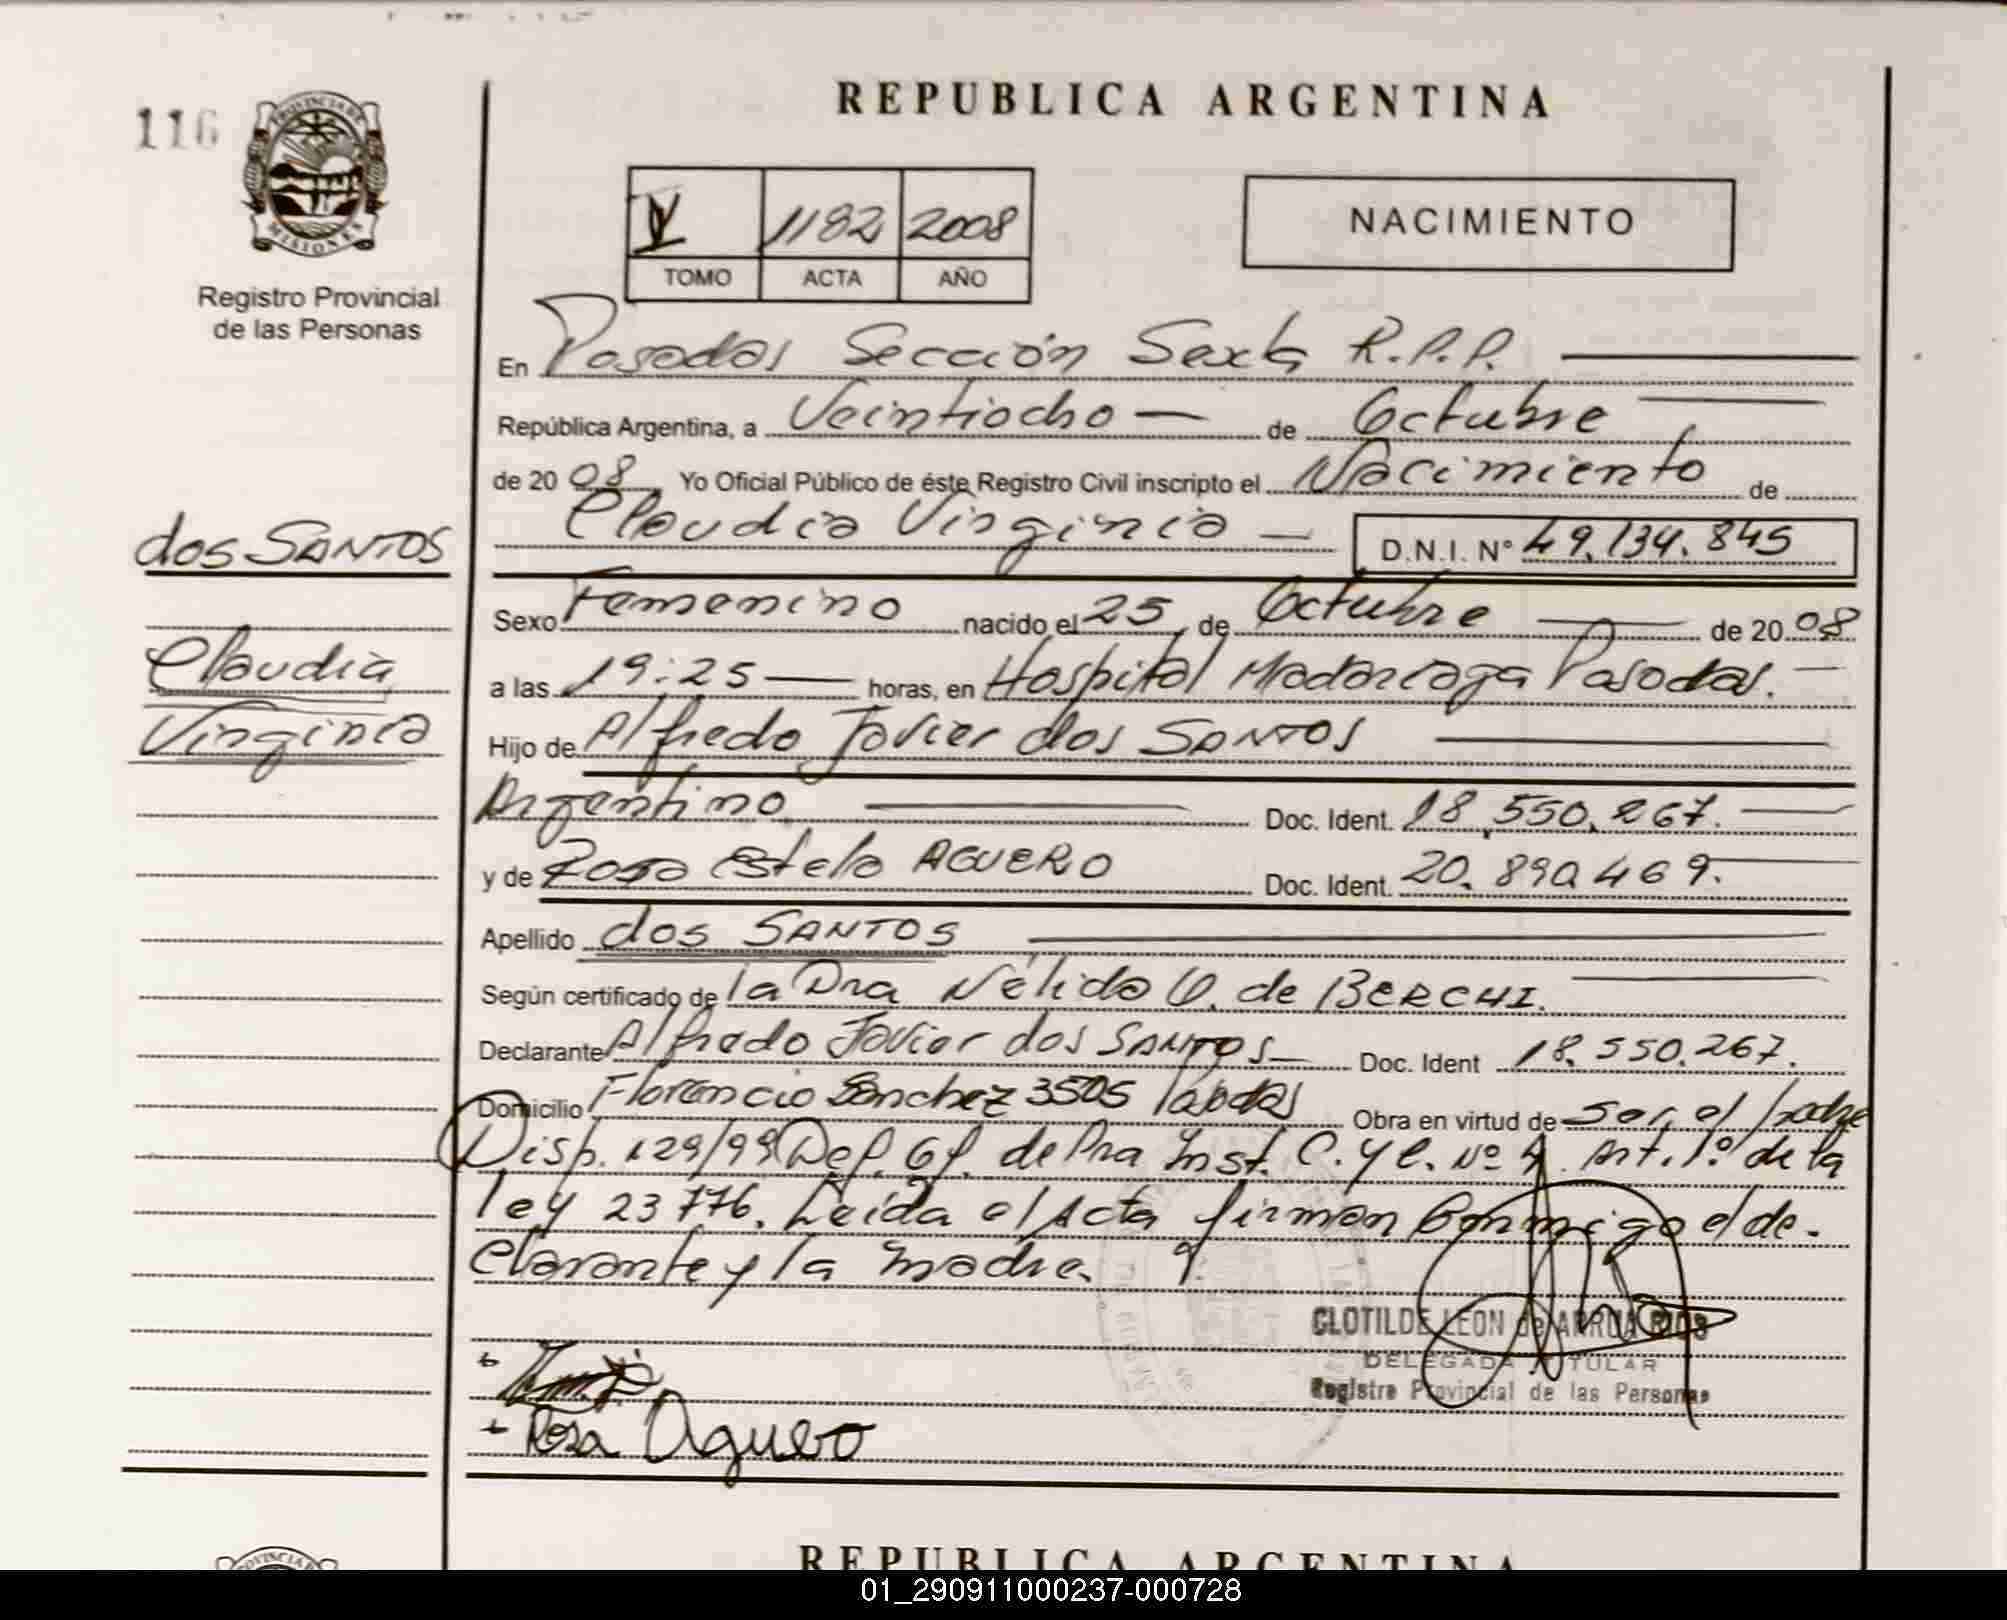 116
PROVINCIA DE
MISIONES
Registro Provincial
de las Personas
dos SANTOS
Claudia
Virginia
REPUBLICA ARGENTINA
V 1182 2008
TOMO ACTA AÑO
NACIMIENTO
En Posadas Sección Sexta R.P.P.
República Argentina, a Veintiocho — de Octubre
de 2008 Yo Oficial Público de éste Registro Civil inscripto el Nacimiento de
Claudia Virginia — D.N.I. N° 49.134.845
Sexo Femenino nacido el 25 de Octubre — de 2008
a las 19:25 — horas, en Hospital Madariaga Posadas. —
Hijo de Alfredo Javier dos SANTOS —
Argentino — Doc. Ident. 18.550.267. —
y de Rosa Estela AGUERO Doc. Ident. 20.890.469. —
Apellido dos SANTOS —
Según certificado de la Dra Nélida de BERCHI. —
Declarante Alfredo Javier dos SANTOS — Doc. Ident 18.550.267.
Domicilio Florencio Sánchez 3505 Obra en virtud de ser el padre
Disp. 129/99 Def. Of. de Pra Inst. C. y C. Nº 4. Art. 1º de la
ley 23776. Leída el Acta firman conmigo el de-
clarante y la madre.
CLOTILDE LEON de ARRUA RIOS
DELEGADA TITULAR
Registro Provincial de las Personas
Rosa Aguero
REPUBLICA ARGENTINA
01_290911000237-000728